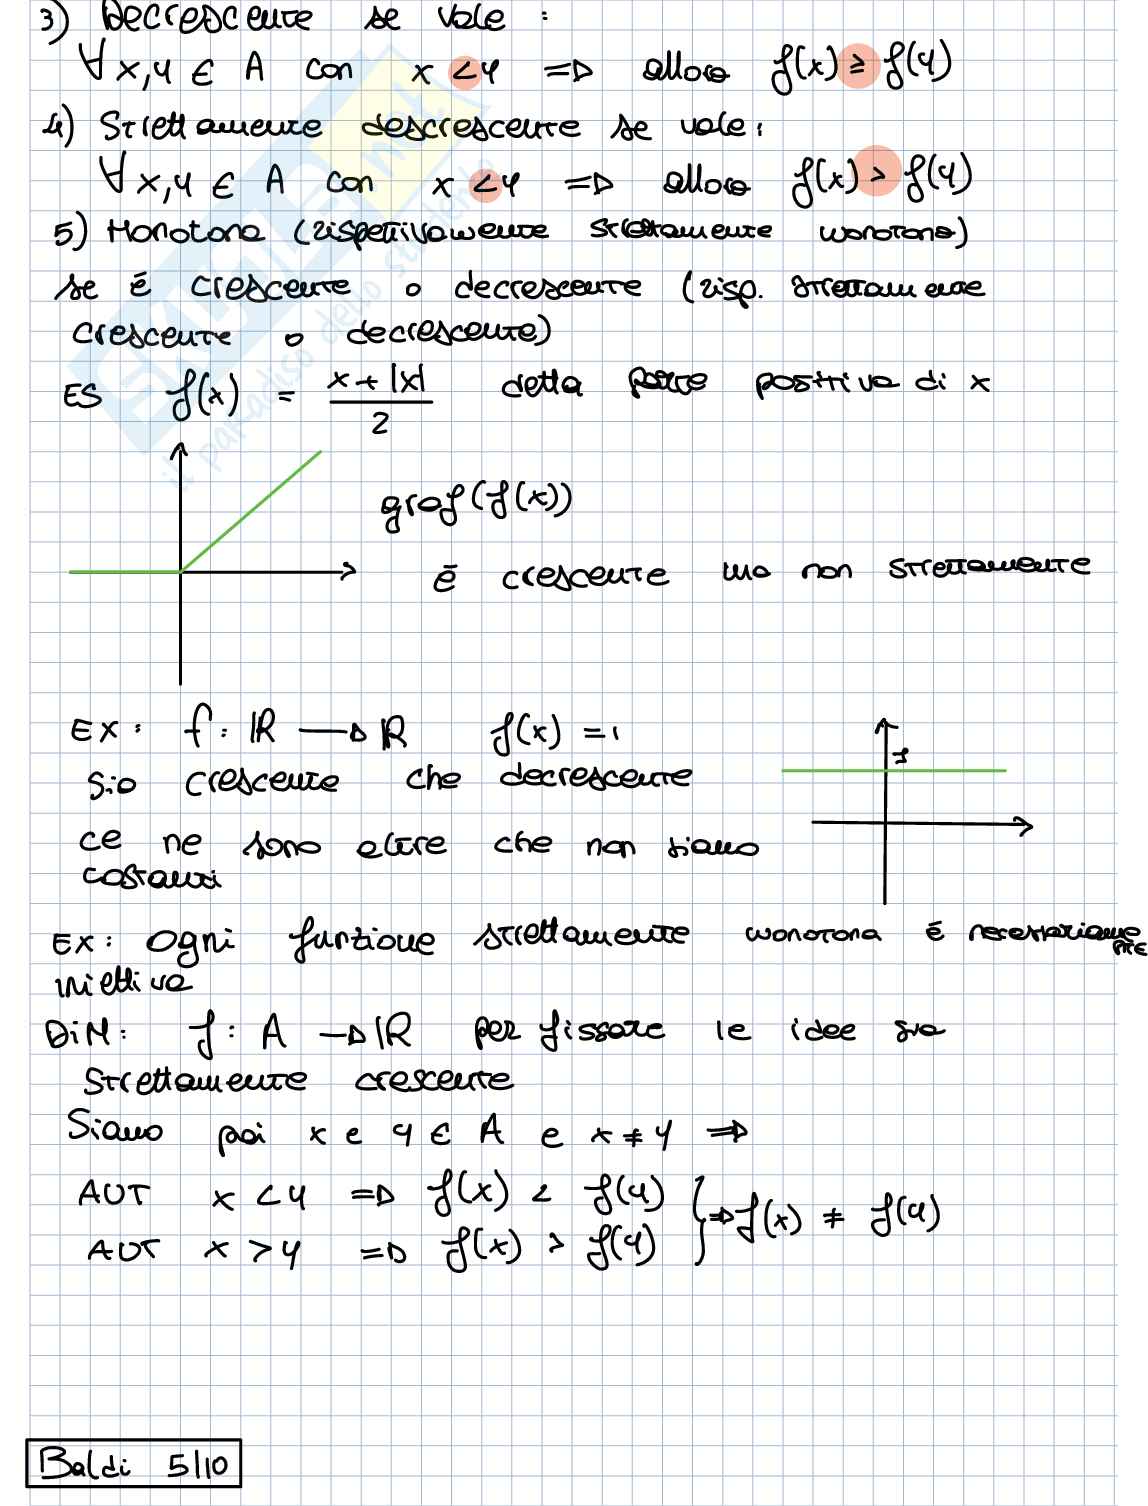 3) Decrescente se vale :
∀ x,y ∈ A con x < y => allora f(x) ≥ f(y)
4) Strettamente descrescente se vale:
∀ x,y ∈ A con x < y => allora f(x) > f(y)
5) Monotona (rispettivamente strettamente monotona)
se è crescente o decrescente (risp. strettamente
crescente o decrescente)
ES f(x) = (x + |x|)/2 detta parte positiva di x
graf(f(x))
è crescente ma non strettamente
Ex: f: ℝ → ℝ f(x) = 1
1
Sia crescente che decrescente
ce ne sono altre che non siano
costanti
Ex: Ogni funzione strettamente monotona è necessariamente
iniettiva
DIM: f: A → ℝ per fissare le idee sia
strettamente crescente
Siano poi x e y ∈ A e x ≠ y =>
AUT x < y => f(x) < f(y)
AUT x > y => f(x) > f(y) } => f(x) ≠ f(y)
Baldi 5/10
SKUOLA.net
il paradiso dello studente